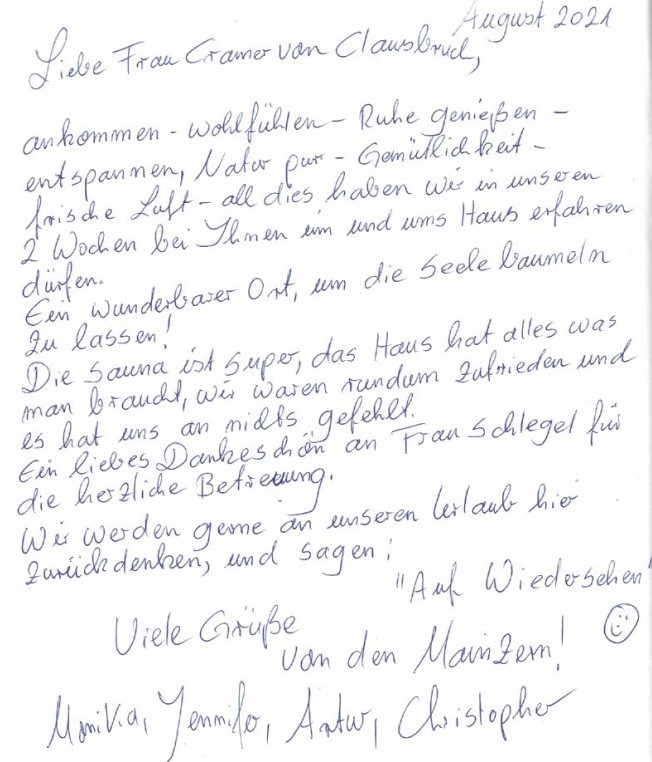 August 2021
Liebe Frau Cramer von Clausbruch,
ankommen - wohlfühlen - Ruhe genießen -
entspannen, Natur pur - Gemütlichkeit -
frische Luft - all dies haben wir in unseren
2 Wochen bei Ihnen im und ums Haus erfahren
dürfen.
Ein wunderbarer Ort, um die Seele baumeln
zu lassen!
Die Sauna ist super, das Haus hat alles was
man braucht, wir waren rundum zufrieden und
es hat uns an nichts gefehlt.
Ein liebes Dankeschön an Frau Schlegel für
die herzliche Betreuung.
Wir werden gerne an unseren Urlaub hier
zurückdenken, und sagen:
"Auf Wiedersehen"
Viele Grüße
von den Mainzern!
Monika, Jennifer, Artur, Christopher